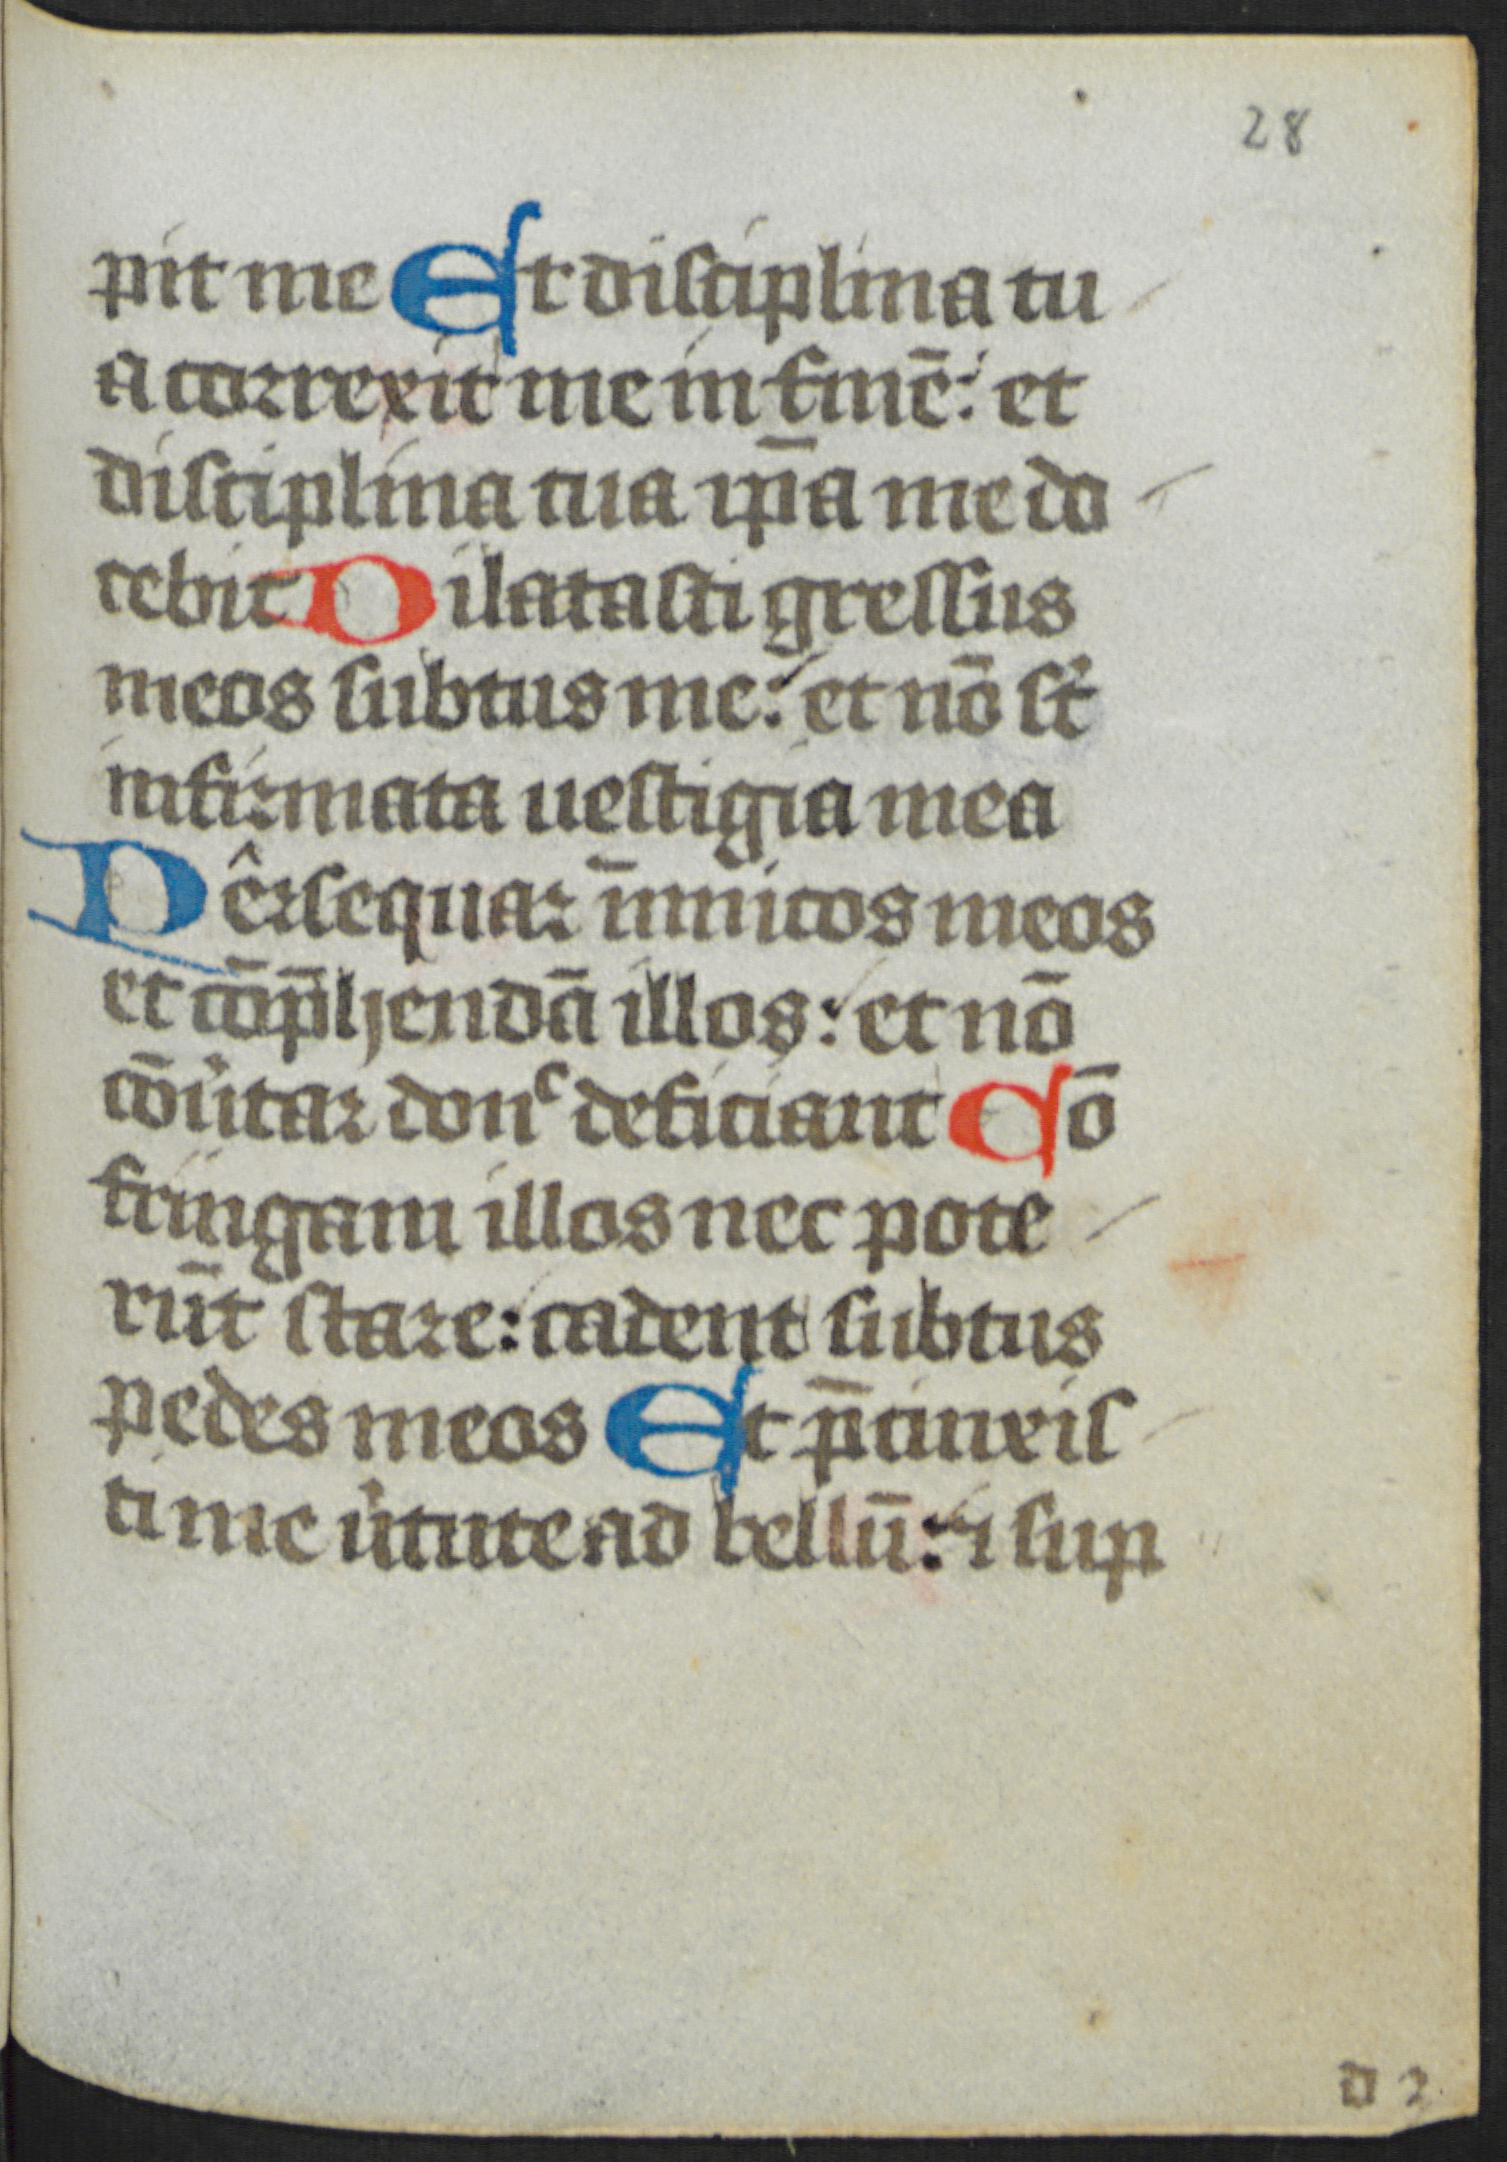 28
pit me Et disciplina tu
a correxit me in finē: et
disciplina tua ip̄a me do
cebit Dilatasti gressus
meos subtus me: et nō st̄
infirmata uestigia mea
Persequar inimicos meos
et cōp̄hendā illos: et nō
cōu͛tar donᶜ deficiant Cō
fringam illos nec pote
rūt stare: cadent subtus
pedes meos Et p̄cinxis
ti me u͛tute ad bellū: ⁊ suꝑ
d 2